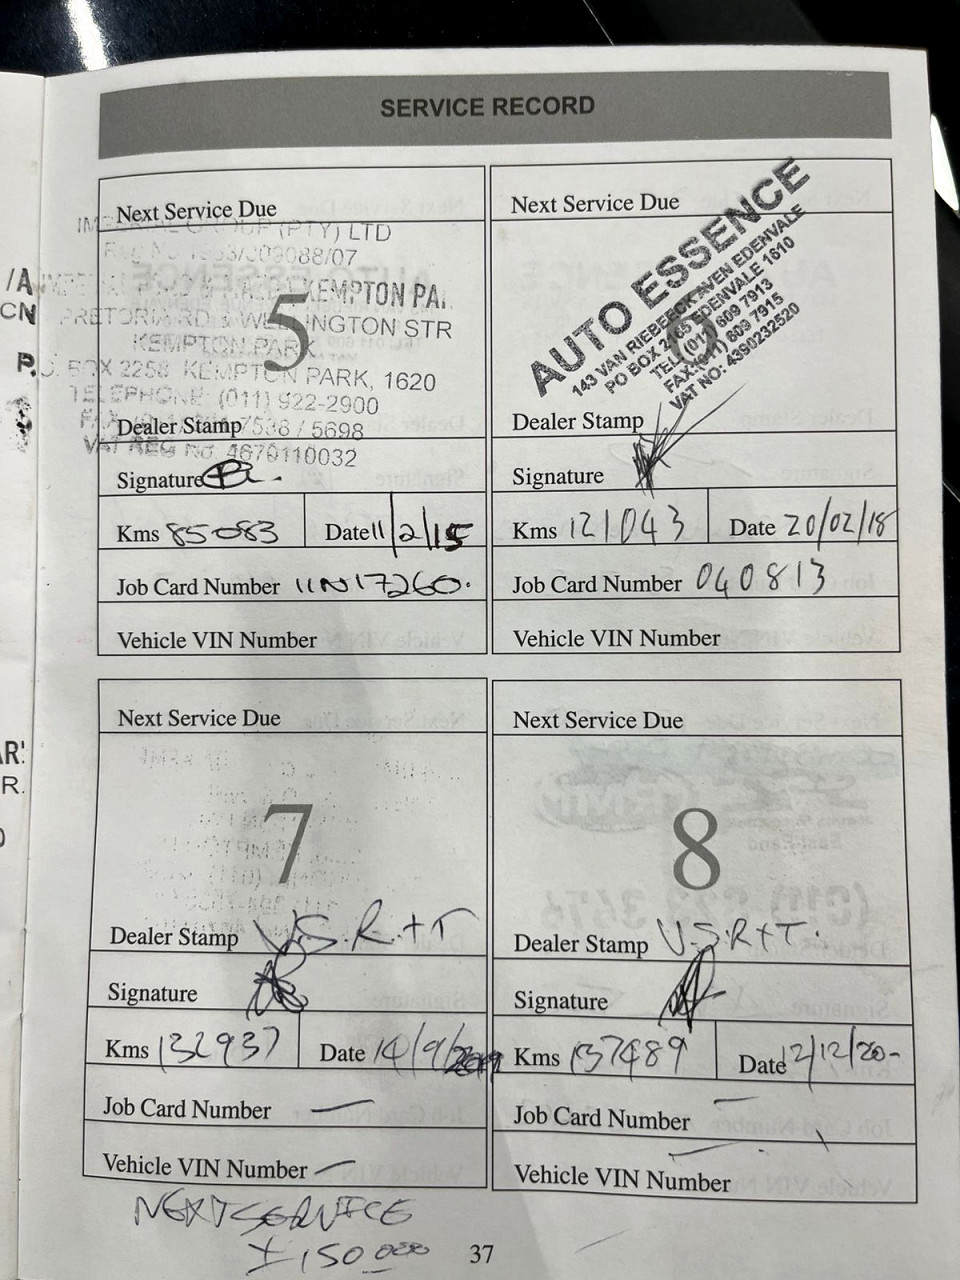 SERVICE RECORD
Next Service Due
IMPERIAL GROUP (PTY) LTD
KEMPTON PA
PRETORIA RD & WELLINGTON STR
KEMPTON PARK
P.O. BOX 2258 KEMPTON PARK, 1620
TELEPHONE: (011) 922-2900
5
Dealer Stamp
7538 / 5698
VAT REG No. 4670110032
Signature
Kms 85083 Date 11/2/15
Job Card Number 11N17260.
Vehicle VIN Number
Next Service Due
AUTO ESSENCE
143 VAN RIEBEECK AVEN EDENVALE
EDENVALE 1610
TEL: (011) 609 7913
FAX: (011) 609 7915
VAT NO: 4390232520
Dealer Stamp
Signature
Kms 121043 Date 20/02/18
Job Card Number 040813
Vehicle VIN Number
Next Service Due
7
Dealer Stamp V.S.R.+T
Signature
Kms 132937 Date 14/9/
Job Card Number —
Vehicle VIN Number —
Next Service Due
8
Dealer Stamp V.S.R+T.
Signature
Kms 137489 Date 12/12/20-
Job Card Number —
Vehicle VIN Number
NEXT SERVICE
± 150 000
37
/A
CN
P.
R.